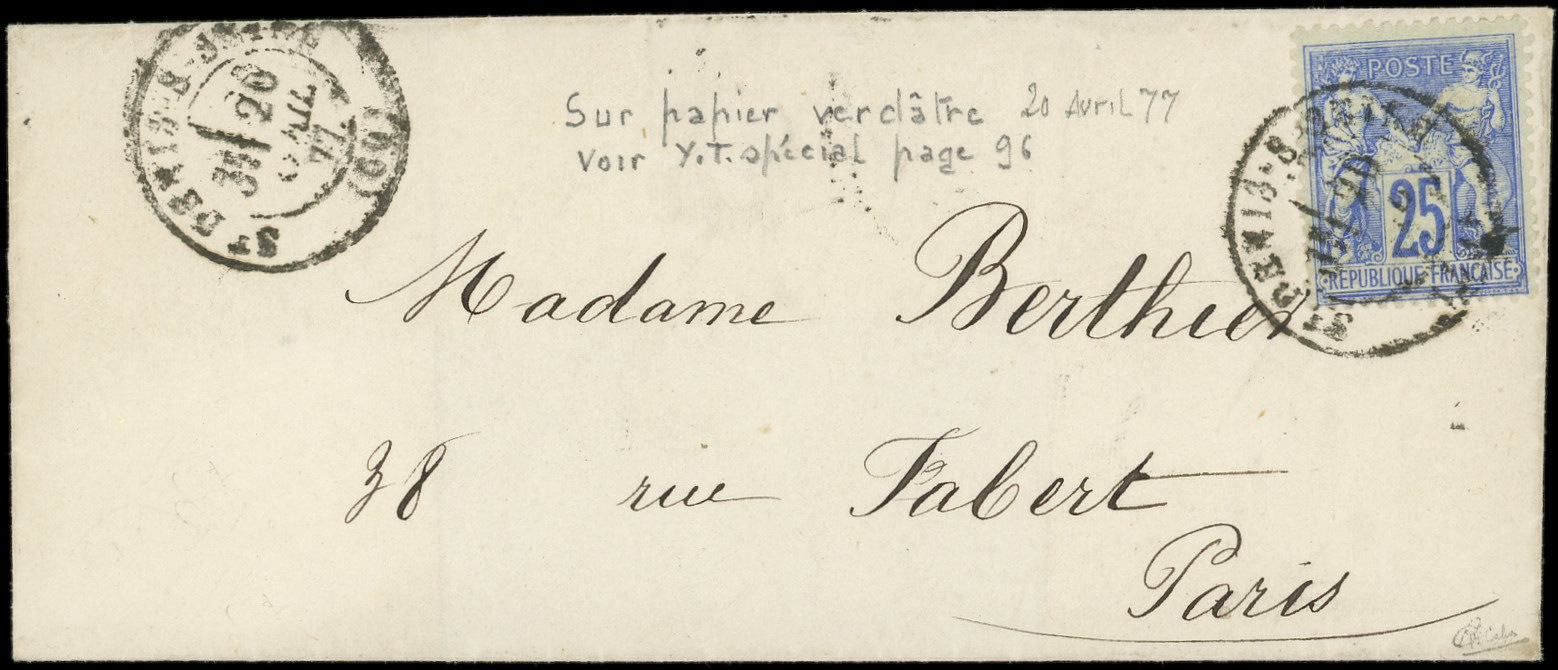 ST DENIS-S-SEINE (60)
3E
20
AVRIL
77
Sur papier verdâtre 20 Avril 77
Voir Y.T. spécial page 96
POSTE
25
REPUBLIQUE FRANÇAISE
ST DENIS-S-SEINE
Madame Berthier
38 rue Fabert
Paris